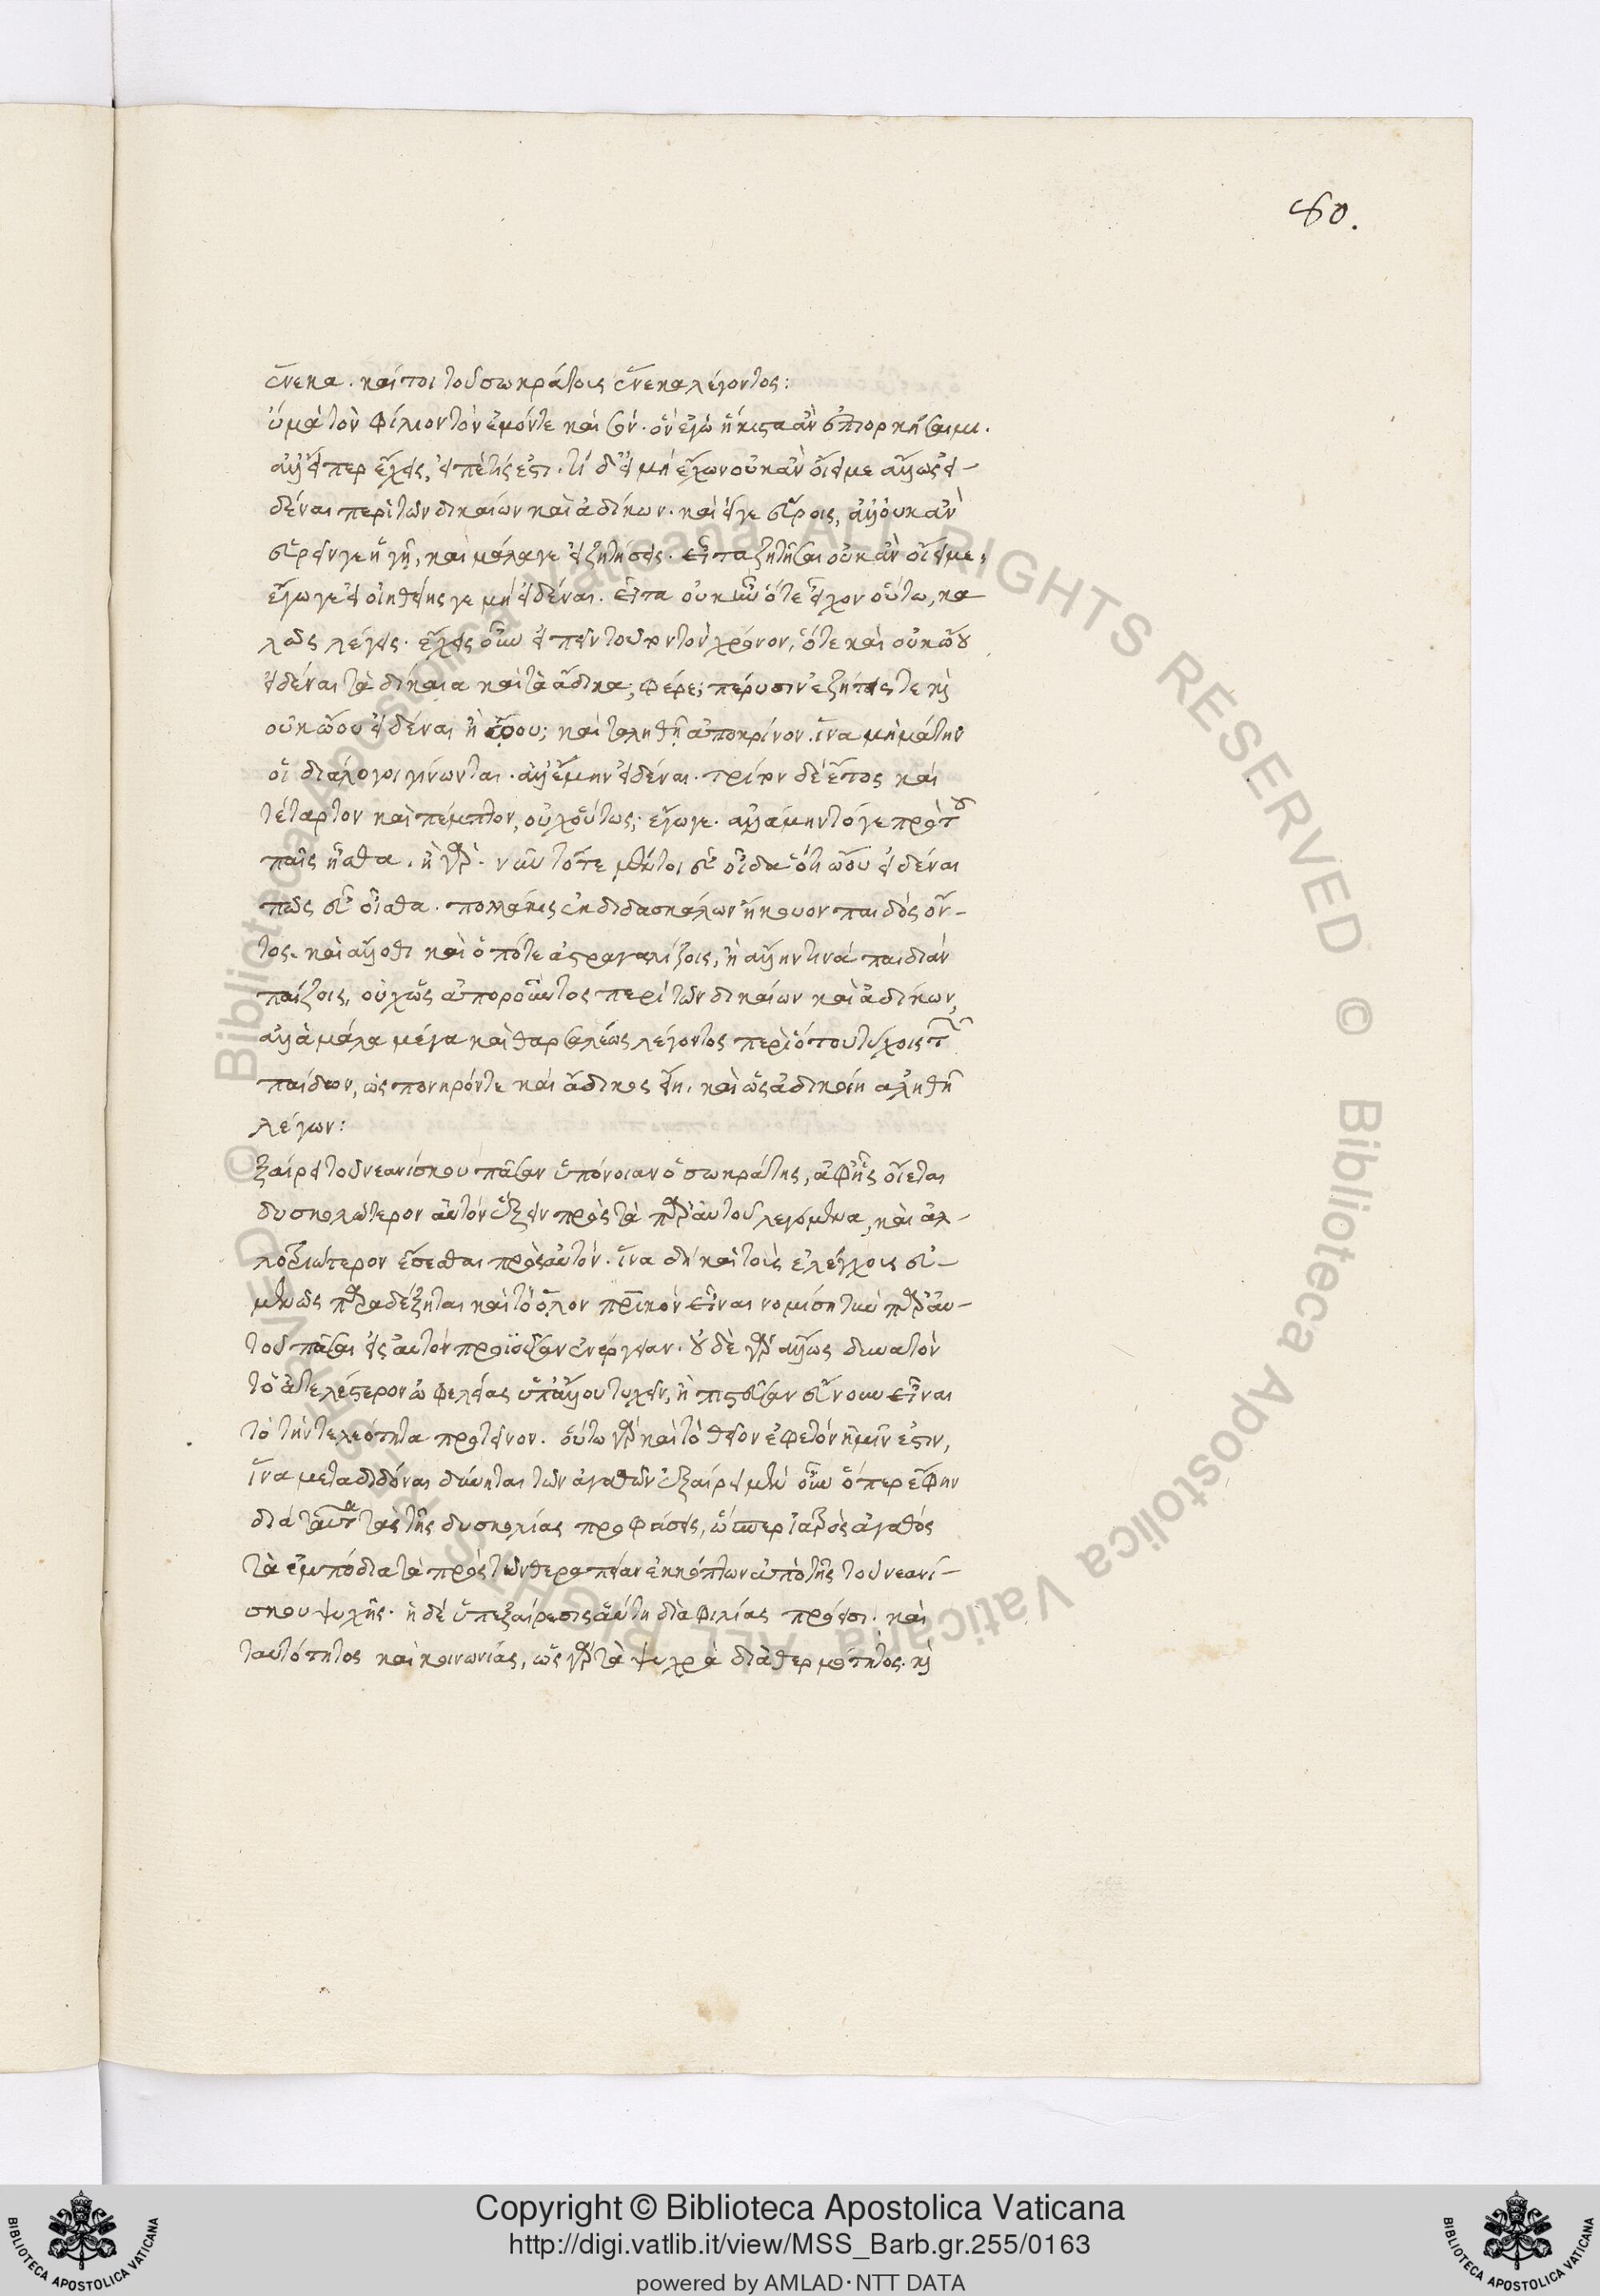 80.
ἕνεκα. καί τοι τοῦ σωκράτους ἕνεκα λέγοντος:
οὐ μὰ τὸν φίλιον τὸν ἐμόν τε καὶ σόν. ὃν ἐγὼ ἥκιστα ἂν ἐπιορκήσαιμι.
ἀλλ' εἴπερ ἔχεις, εἰπὲ τίς ἐστι. τί δ' εἰ μὴ ἔχω οὐκ ἂν οἴει με ἄλλως εἰ-
δέναι περὶ τῶν δικαίων καὶ ἀδίκων. ναὶ εἴγε εὕροις, ἀλλ' οὐκ ἂν
εὑρεῖν με ἡγῇ, καὶ μάλα γε εἰ ζητήσεις. εἶτα ζητῆσαι οὐκ ἂν οἴει με;
ἔγωγε εἰ οἰηθείης γε μὴ εἰδέναι. εἶτα οὐκ ἦν ὅτε εἶχον οὕτω, κα
λῶς λέγεις. ἔχεις οὖν εἰπεῖν τοῦτον τὸν χρόνον, ὅτε καὶ οὐκ ᾤου
εἰδέναι τὰ δίκαια καὶ τὰ ἄδικα; φέρε; πέρυσιν ἐζήτεις τε καὶ
οὐκ ᾤου εἰδέναι ἢ ᾤου; καὶ τἀληθῆ ἀποκρίνου. ἵνα μὴ μάτην
οἱ διάλογοι γίνωνται. ἀλλ' ᾤμην εἰδέναι. τρίτον δὲ ἔτος καὶ
τέταρτον καὶ πέμπτον, οὐχ οὕτως; ἔγωγε. ἀλλὰ μὴν τό γε πρὸ τοῦ
παῖς ἦσθα. ἦ γάρ. ναί τότε μέντοι εὖ οἶδα ὅτι ᾤου εἰδέναι
πῶς εὖ οἶσθα. πολλάκις ἐν διδασκάλων ἤκουον παιδὸς ὄν-
τος. καὶ ἄλλοθι καὶ ὁπότε ἀστραγαλίζοις, ἢ ἄλλην τινὰ παιδιὰν
παίζοις, οὐχ ὡς ἀποροῦντος περὶ τῶν δικαίων καὶ ἀδίκων,
ἀλλὰ μάλα μέγα καὶ θαρσαλέως λέγοντος περὶ ὅτου τύχοις τῶν
παίδων, ὡς πονηρός τε καὶ ἄδικος εἴη. καὶ ὡς ἀδικοίη ἀληθῆ
λέγων:
ἐξαίρει τοῦ νεανίσκου πᾶσαν ὑπόνοιαν ὁ σωκράτης, ἀφ' ἧς οἴεται
δυσκολώτερον αὐτὸν ἕξειν πρὸς τὰ παρ' αὐτοῦ λεγόμενα, καὶ ἀλ-
λοτριώτερον ἔσεσθαι πρὸς αὐτόν. ἵνα δὴ καὶ τοὺς ἐλέγχους εὐ-
μενῶς παραδέξηται καὶ τὸ ὅλον πατρικὸν εἶναι νομίσῃ τὴν παρ' αὐ-
τοῦ πᾶσαν εἰς αὐτὸν προϊοῦσαν ἐνέργειαν. οὐδὲ γὰρ ἄλλως δυνατὸν
τὸ ἀτελέστερον ὠφελείας ὑπ' ἄλλου τυχεῖν, ἢ πιστεῦσαν εὔνουν εἶναι
τὸ τὴν τελειότητα προτεῖνον. οὕτω γὰρ καὶ τὸ θεῖον ἐφετὸν ἡμῖν ἐστιν,
ἵνα μεταδιδόναι δύνηται τῶν ἀγαθῶν ἐξαίρει μὲν οὖν ὅπερ ἔφην
διὰ ταῦτα τὰς τῆς δυσκολίας προφάσεις, ὥσπερ ἰατρὸς ἀγαθός
τὰ ἐμπόδια τὰ πρὸς τὴν θεραπείαν ἐκκόπτων ἀπὸ τῆς τοῦ νεανί-
σκου ψυχῆς. ἡ δὲ ὑπεξαίρεσις αὕτη διὰ φιλίας πρόεισι. καὶ
ταυτότητος καὶ κοινωνίας, ὡς γὰρ τὰ ψυχρὰ διὰ θερμότητος. καὶ
Copyright © Biblioteca Apostolica Vaticana
http://digi.vatlib.it/view/MSS_Barb.gr.255/0163
powered by AMLAD·NTT DATA